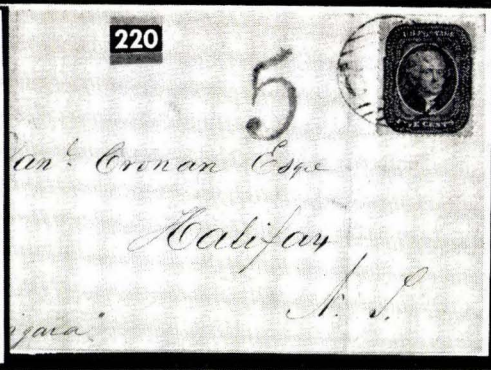 220
5
U.S. POSTAGE
FIVE CENTS
Danˡ Cronan Esqr
Halifax
N. S.